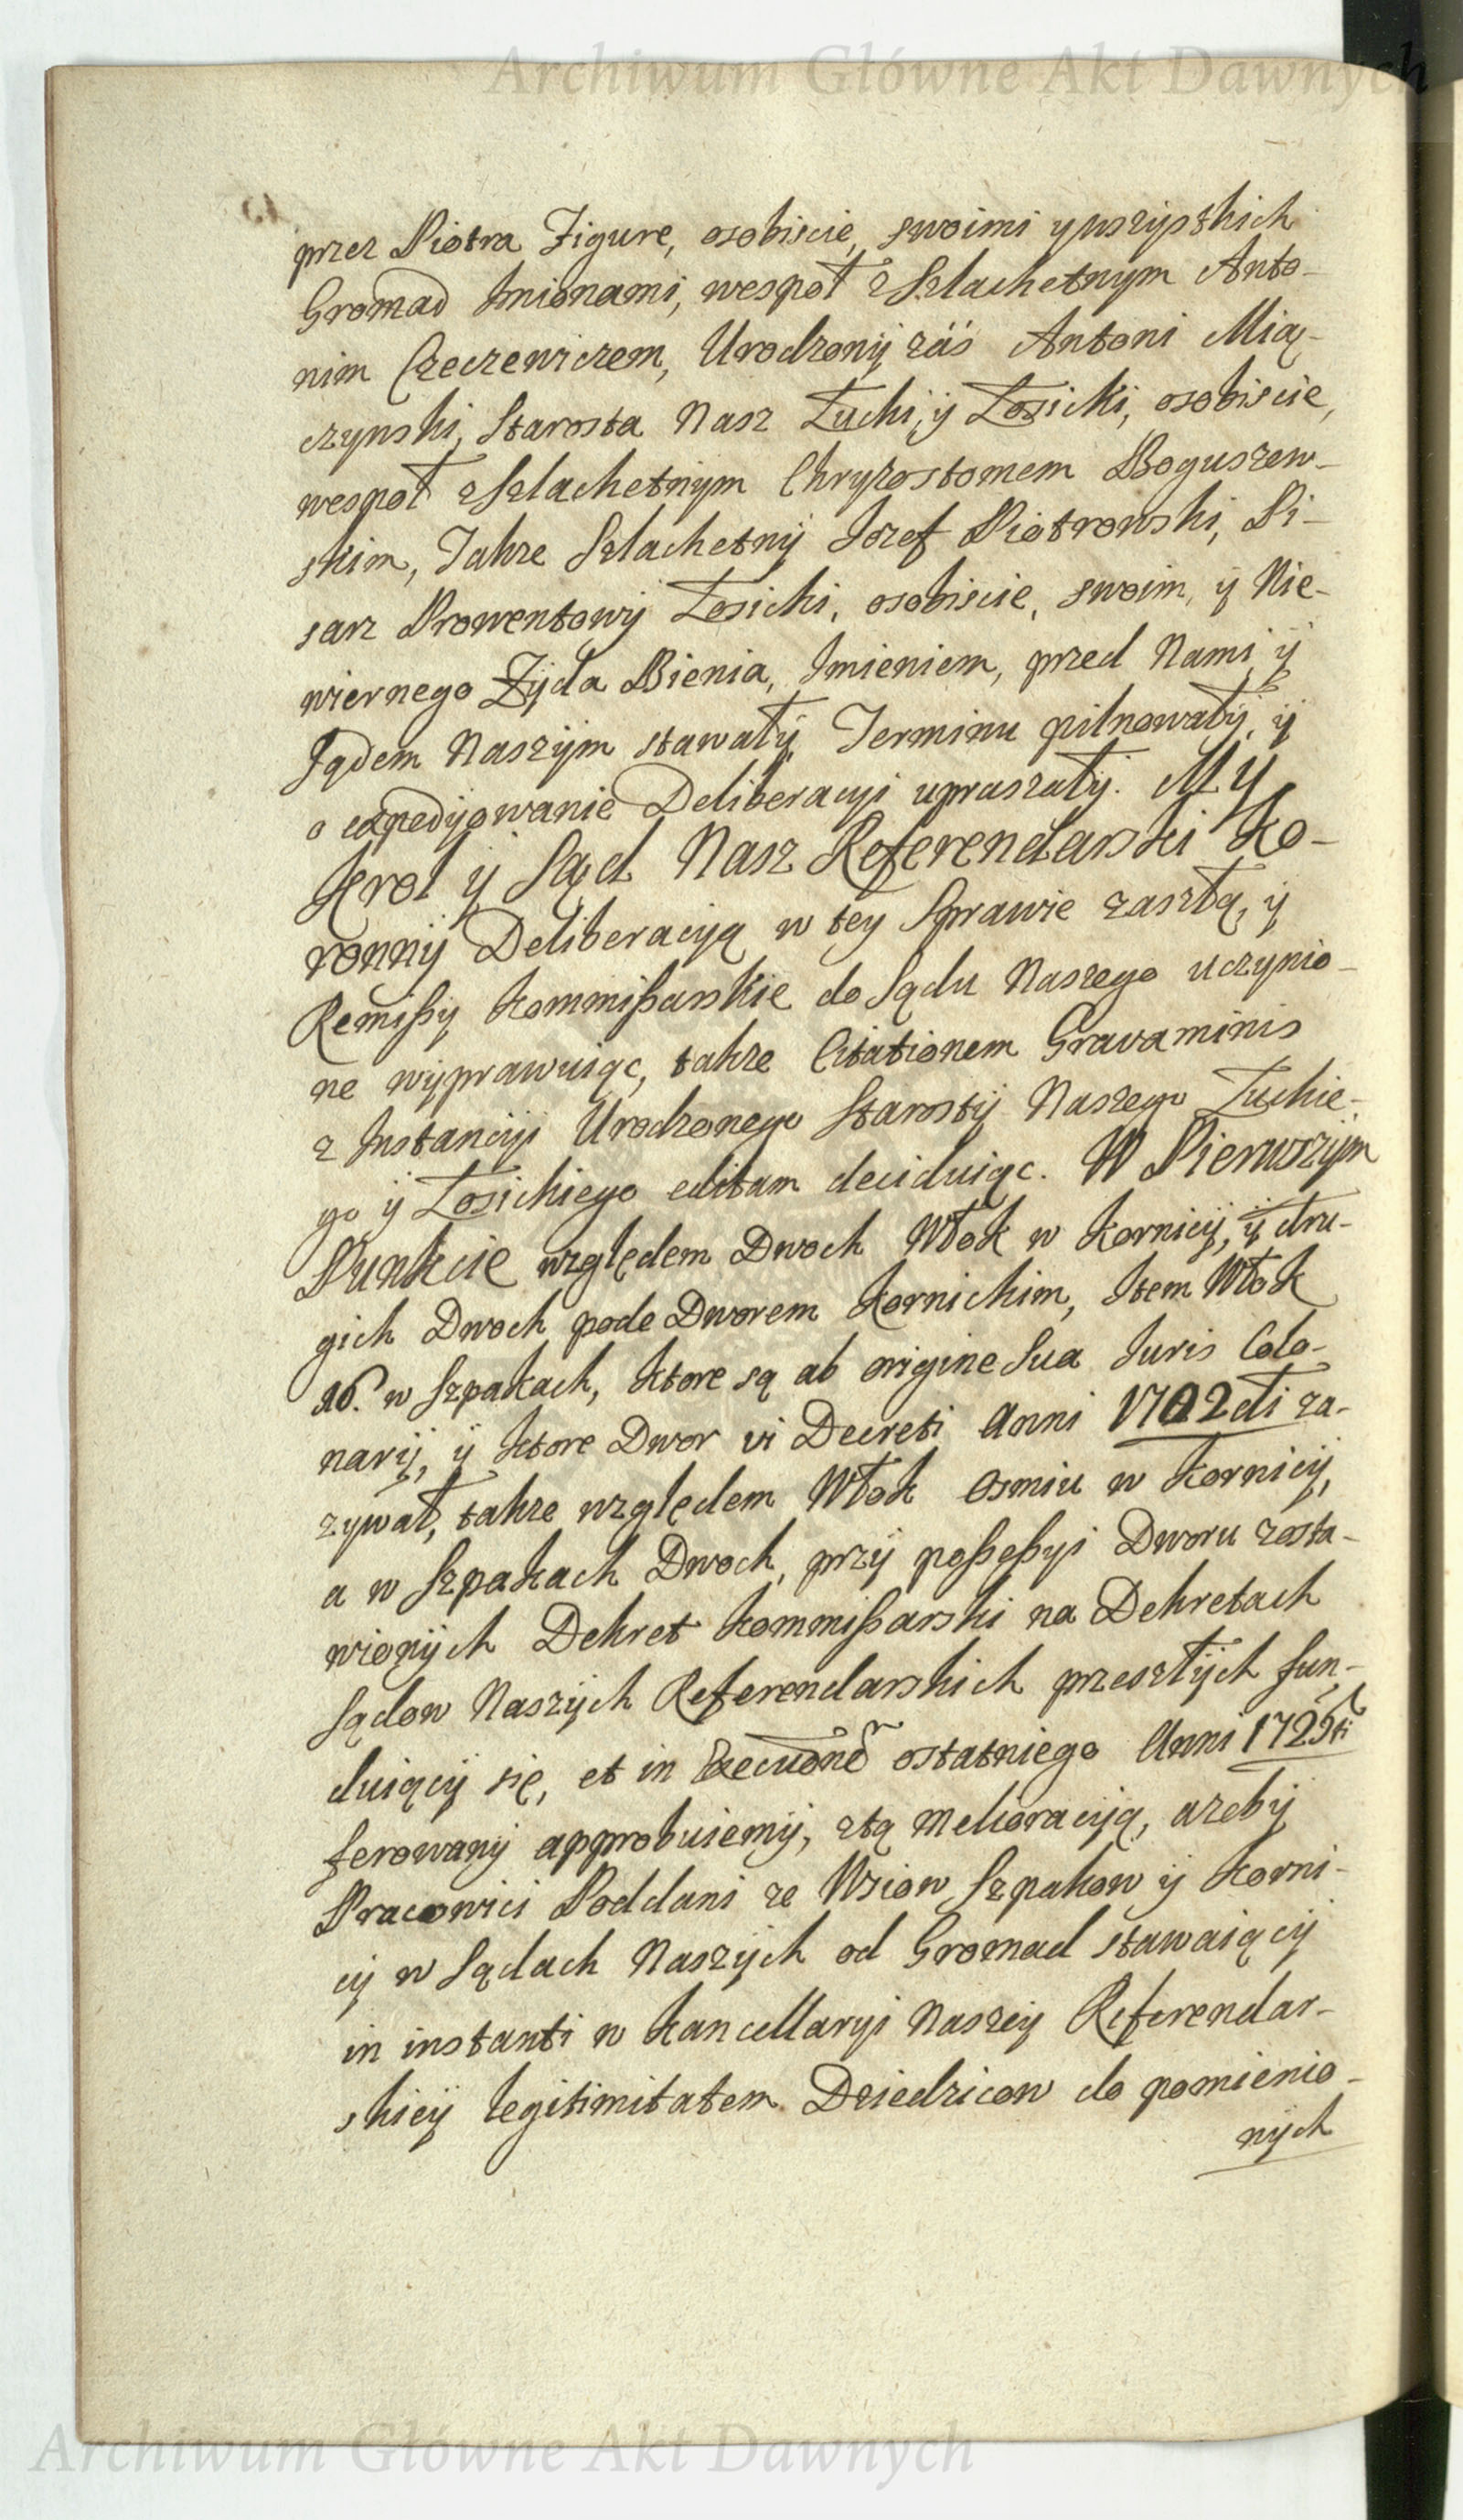 Archiwum Główne Akt Dawnych
przez Piotra Figure, osobiscie, swoimi y wszystkich
Gromad Jmionami, wespoł z Szlachetnym Anto-
nim Czeczewiczem, Urodzonÿ zaś Antoni Mią-
czynski, Starosta Nasz Łucki, ÿ Łosicki, osobiscie,
wespoł z Szlachetnÿm Chryzostomem Boguszew-
skim, Takze Szlachetnÿ Jozef Piotrowski, Pi-
sarz Prowentowÿ Łosicki, osobiscie, swoim, ÿ Nie-
wiernego Żÿda Bienia, Jmieniem, przed Nami ÿ
Sądem Naszÿm stawałÿ Terminu pilnowałÿ, ÿ
o expedÿowanie Deliberacyi upraszałÿ. MY
Krol ÿ Sąd Nasz Referendarski Ko-
ronnÿ Deliberacyą w teÿ Sprawie zaszłą, ÿ
Remißÿ Kommißarskie do Sądu Naszego uczynio-
ne wÿprawuiąc, takze Citationem Gravaminis
z Jnstancÿi Urodzonego Starostÿ Naszego Łuckie-
go ÿ Łosickiego editam deciduiąc. W Pierwszÿm
Punkcie względem Dwoch Włok w Kornicÿ, ÿ dru-
gich Dwoch pode Dworem Kornickim, Jtem Włok
16. w Szpakach, ktore są ab origine Sua Juris Colo-
narÿ, ÿ ktore Dwor vi Decreti Anni 1702di za-
zywał, takze względem Włok Osmiu w Kornicÿ,
a w Szpakach Dwoch, przÿ poßeßyi Dworu zosta-
wionÿch Dekret Kommißarski na Dekretach
Sądow Naszÿch Referendarskich przeszłÿch fun-
duiącÿ się, et in Executione ostatniego Anni 1725ti
ferowanÿ approbuiemÿ, z tą melioracyią, azebÿ
Pracowici Poddani ze Wsiow Szpakow ÿ Korni-
cÿ w Sądach Naszÿch od Gromad stawaiącÿ
in instanti w Kancellaryi Naszeÿ Referendar-
skieÿ legitimitatem Dziedzicow do pomienio-
nÿch
Archiwum Główne Akt Dawnych